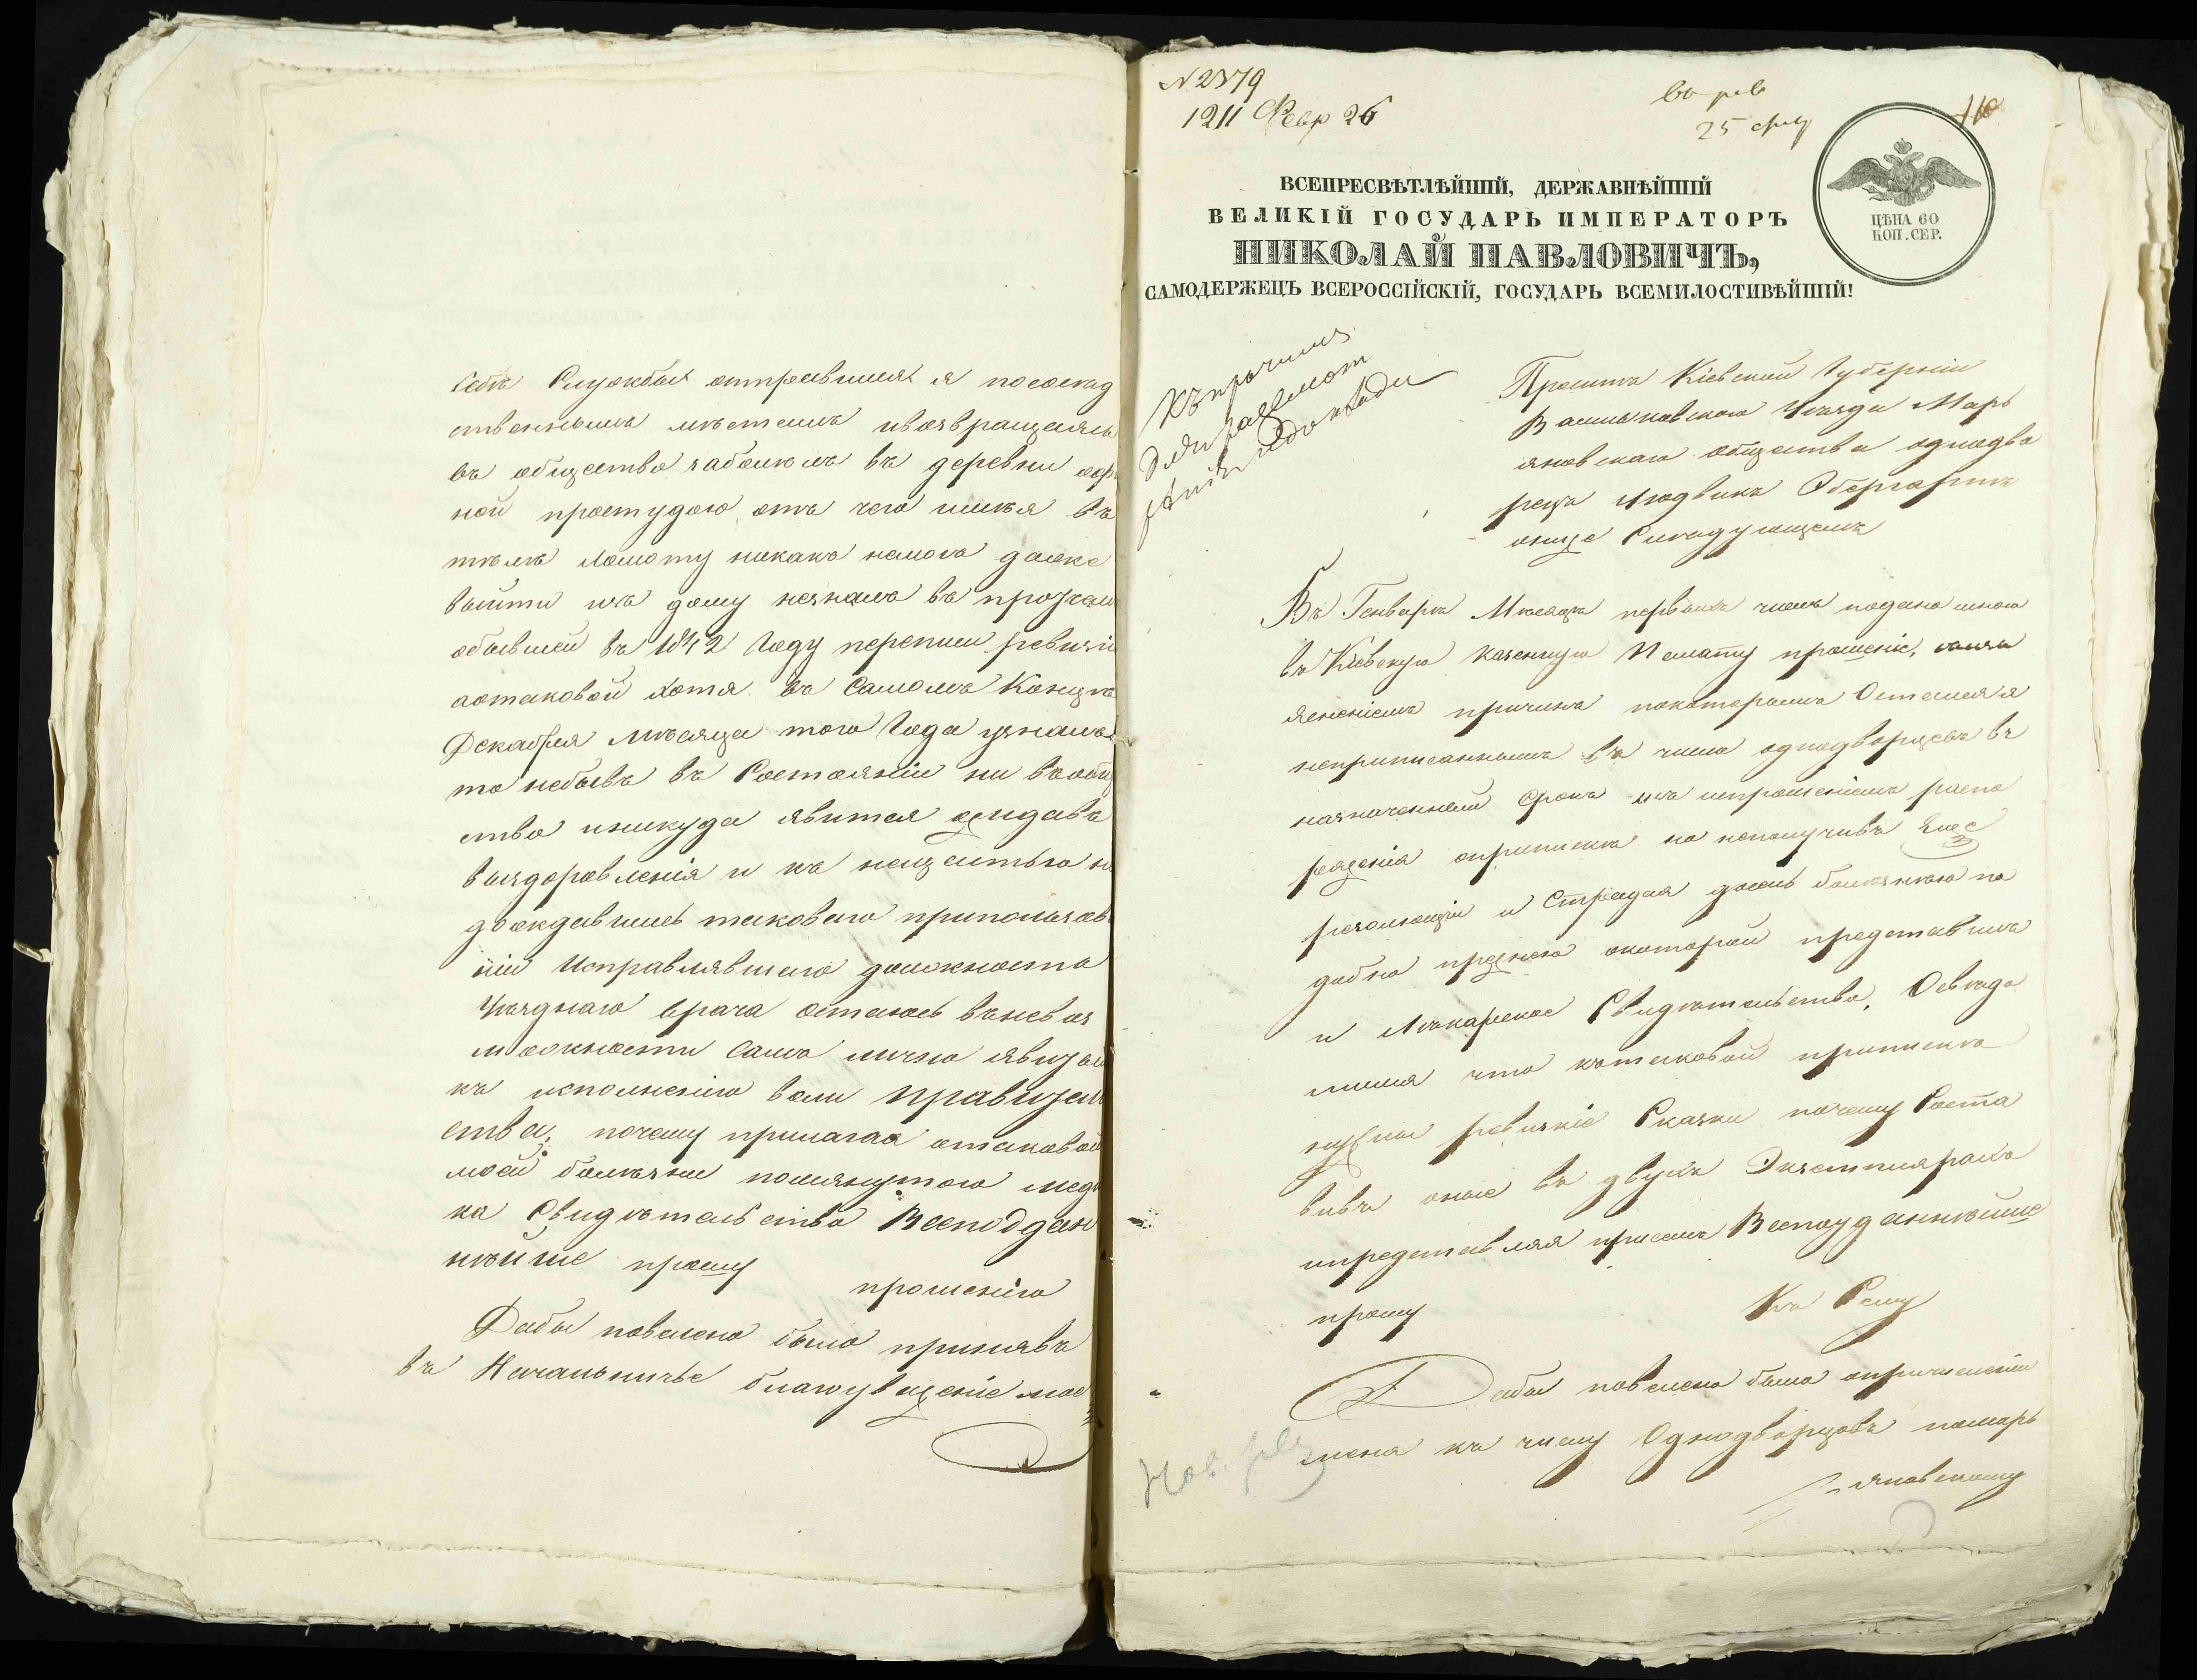 себѣ Службы отправился я посоевод
ственнымъ мѣстамъ ивозвращаясь
въ общество заболѣлъ въ деревни
ной простудою отъ чего имѣя въ
тѣлѣ ломоту никакъ немогъ даже
выйти изъ дому незналъ въ
обывшей въ 1842 Году переписи ревизіи
аотаковой хотя въ Самомъ Концѣ
Декабря Мѣсяца того Года узналъ
то небывъ въ Состояніи ни вообще
ство иникуда явится ожидавъ
выздоровленія и къ нещастью не
дождавшись таковаго припользова
ніи Исправлявшаго должность
Уѣзднаго врача остаюсь въневоз
можности Самъ лично
къ исполненію воли Правител
ства, почему прилагая отаковой
моей болѣзни помянутого меди
ка Свидѣтельство Всеподдан
нѣйше прошу
прошенію
Дабы повелено было принявъ
въ Началничье благоувоженіе мое
N 2379
Февр 26
въ рев
25 фев
110
ВСЕПРЕСВѢТЛѢЙШІЙ, ДЕРЖАВНѢЙШІЙ
ВЕЛИКІЙ ГОСУДАРЬ ИМПЕРАТОРЪ
НИКОЛАЙ ПАВЛОВИЧЪ,
САМОДЕРЖЕЦЪ ВСЕРОССІЙСКІЙ, ГОСУДАРЬ ВСЕМИЛОСТИВѢЙШІЙ!
ЦѢНА 60
КОП. СЕР.
Къ прочимъ
для разсмот
рѣнія и доклада
Проситъ Кіевской Губерніи
Васильковского Уѣзда Марь
яновскаго общества однодво
рецъ Людвикъ
онице Слѣдующемъ
Въ Генварѣ Мѣсяцѣ первыхъ чиселъ подано мною
въ Кіевскую казенную Палату прошеніе, собъя
сненіемъ причинъ покоторымъ Остался я
неприписаннымъ въ число однодворцевъ въ
назначенный срокъ исъ испрошеніемъ распо
ряженія оприпискѣ но неполучивъ Еще
резолюціи и Страдая досель болѣзнью по
добно прежнею окоторой представилъ
и Лѣкарское Свидѣтельство, Освѣдо
мился что котаковой припискѣ
нужны ревизкіе Сказки почему Соста
вивъ оные въ двухъ Экземплярахъ
ипредставляя присемъ Всепудданнѣйше
прошу
Къ Сему
Дабы повелено было опричисленіи
меня къ числу Однодворцовъ помарь
яновскому
Нов. рев